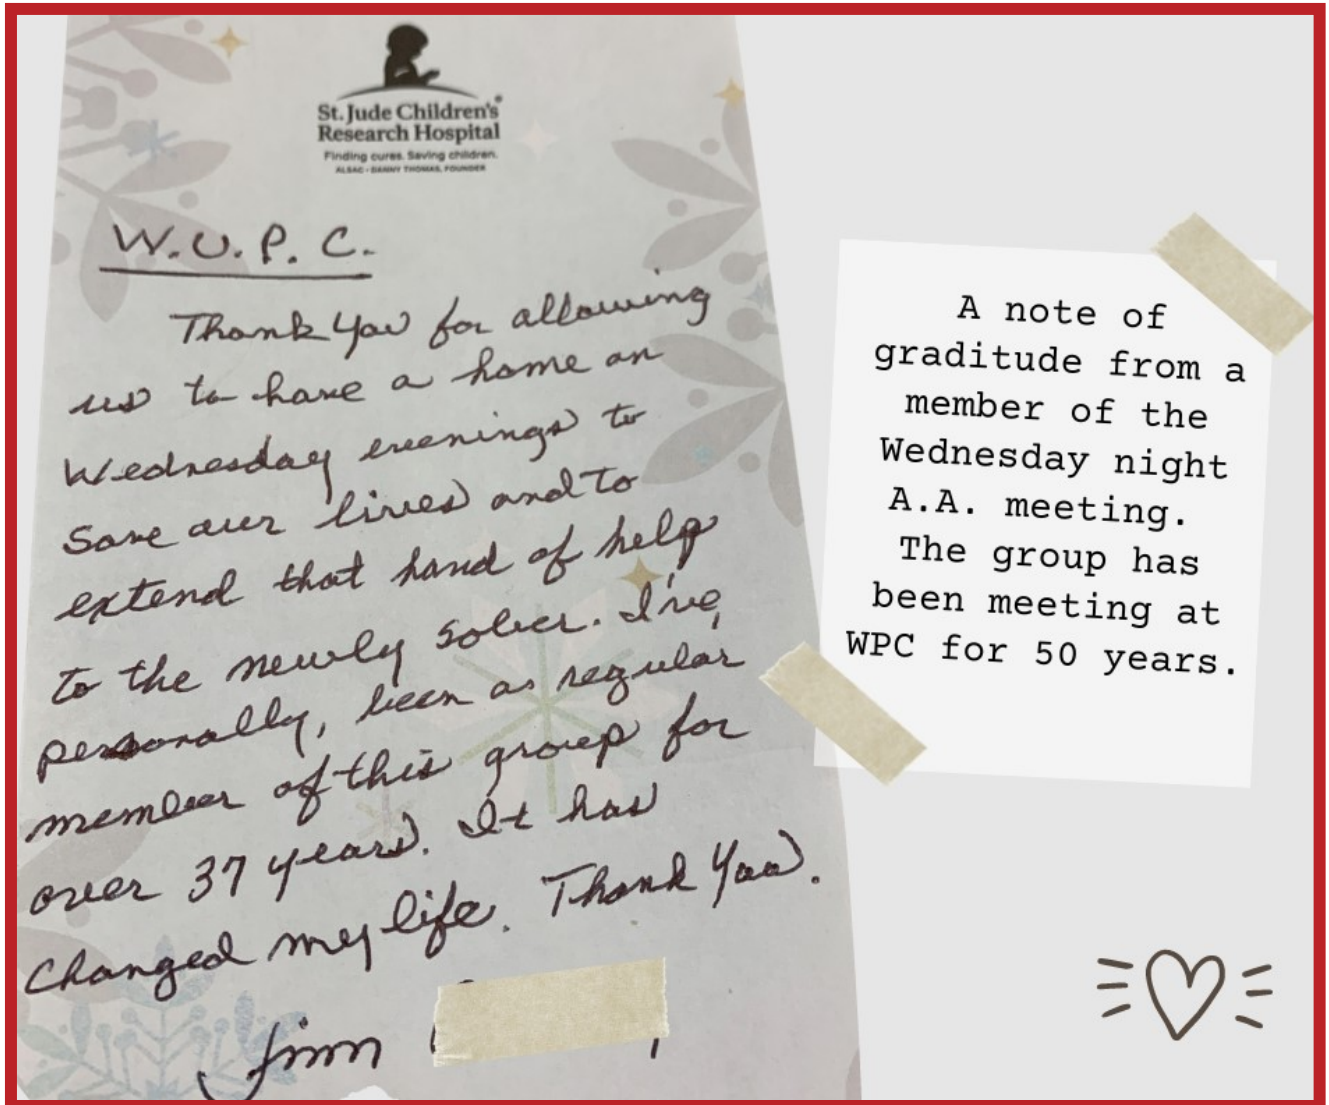 St. Jude Children's®
Research Hospital
Finding cures. Saving children.
ALSAC • DANNY THOMAS, FOUNDER
W.U.P.C.
Thank You for allowing
us to have a home on
Wednesday evenings to
save our lives and to
extend that hand of help
to the newly sober. I've,
personally, been as regular
member of this group for
over 37 years. It has
changed my life. Thank You.
Jim
A note of
graditude from a
member of the
Wednesday night
A.A. meeting.
The group has
been meeting at
WPC for 50 years.